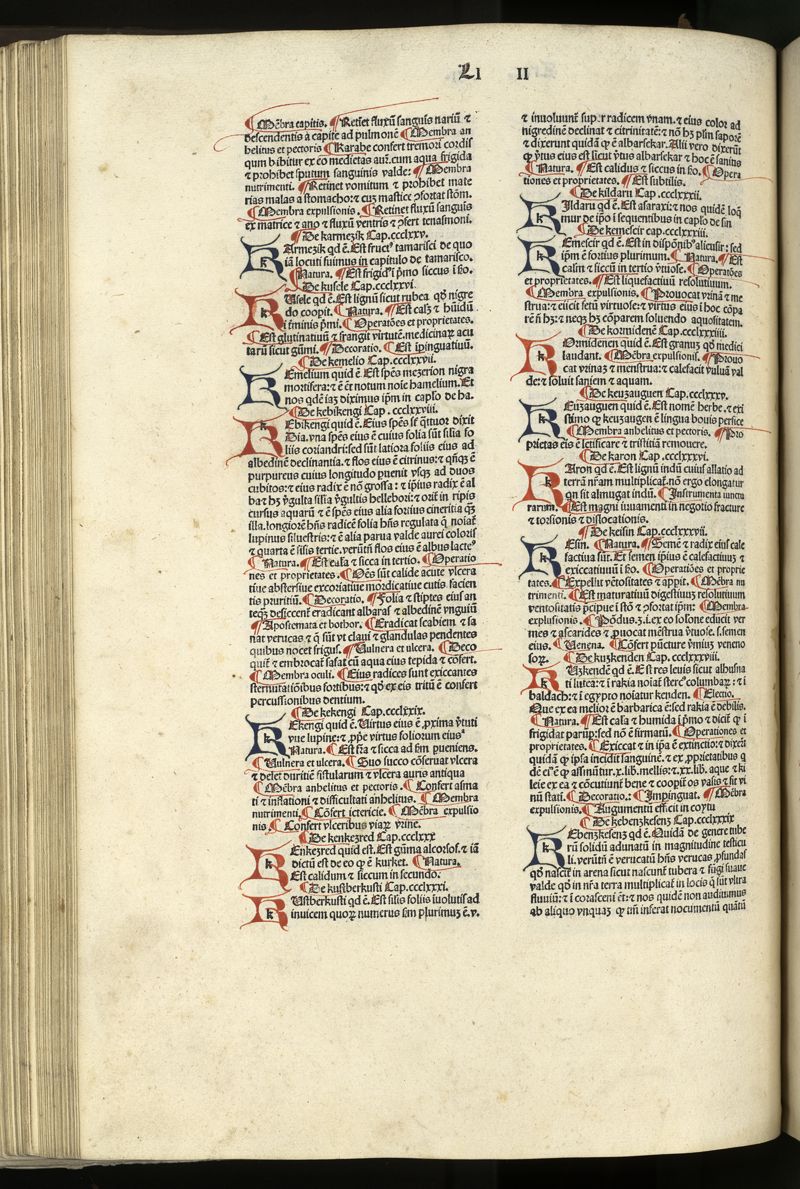 Li II
¶Mēbra capitis. ¶Retinet fluxū sanguīs nariū ⁊
descendentis à capite ad pulmonē ¶Membra an
helitus et pectoris ¶Karabe confert tremori cordis
qum bibitur ex eo medietas auȝ. cum aqua frigida
⁊ prohibet sputum sanguinis valde: ¶Membra
nutrimenti. ¶Retinet vomitum ⁊ prohibet mate
rias malas a stomacho: ⁊ cuȝ mastice ↄfortat stōm.
¶Membra expulsionis. ¶Retinet fluxū sanguīs
ex matrice ⁊ ano ⁊ fluxū ventris ⁊ ↄfert tenasmoni.
¶De karmezik Cap.ccclxxv.
KArmezik qd ē. Est fructꝰ tamarisci de quo
iā locuti fuimus in capitulo de tamarisco.
¶Natura. ¶Est frigidꝰ ī pmo siccus ī scōo.
¶De kusele Cap.ccclxxvi.
KUsele qd ē. Est lignū sicut rubea qd nigre
do coopit. ¶Natura. ¶Est calȝ ⁊ hūidū
ī fminis pmi. ¶Operatōes et proprietates.
¶Est glutinatiuū ⁊ frangit virtutē. medicinaꝝ acu
taꝝ sicut gūmi. ¶Decoratio. ¶Est īpinguatiuū.
¶De kemelio Cap.ccclxxvii.
KEmelium quid ē. Est spēs mezerion nigra
mortifera: ⁊ ē et notum noīe hamelium. Et
nos qdē iaȝ diximus ipm in caplo de ha.
¶De kebikengi Cap. ccclxxviii.
KEbikengi quid ē. Eius spēs sēt qttuor dixit
Dia. vna spēs eius ē cuius folia sūt silia fo
liis coriandri: sed sūt latiora foliis eius ad
albedinē declinantia. ⁊ flos eius ē citrinus: ⁊ qñqȝ ē
purpureus cuius longitudo puenit vsqȝ ad duos
cubitos: ⁊ eius radix ē nō grossa: ⁊ ipius radix ē al
ba ⁊ hȝ ꝟgulta silia ꝟgultis hellebori: ⁊ orit in ripis
cursus aquarū ⁊ ē spēs eius alia fortius cineritia qȝ
illa. longiorē hñs radicē folia hñs regulata q noiat
lupinus siluestris: ⁊ ē alia parua valde aurei coloris
⁊ quarta ē silis tertie. verūtn̄ flos eius ē albus lacteꝰ
¶Natura. ¶Est calida ⁊ sicca in tertio. ¶Operatio
nes et proprietates. ¶Oēs sūt calide acute vlcera
tiue abstersiue excoriatiue mordicatiue cutis facien
tis pruritū. ¶Decoratio. ¶Folia ⁊ stipites eiꝰ an
teqȝ desiccent̄ eradicant albaras ⁊ albedinē vnguiū
¶Apostemata et bothor. ¶Eradicat scabiem ⁊ sa
nat verucas ⁊ q sūt vt claui ⁊ glandulas pendentes
quibus nocet frigus. ¶Vulnera et ulcera. ¶Deco
quit̄ ⁊ embrocat̄ safat cū aqua eius tepida ⁊ cōfert.
¶Membra oculi. ¶Eius radices sunt exiccantes
sternutationibus fortibus: ⁊ qd ex eis tritū ē confert
percussionibus dentium.
¶De kekengi Cap.ccclxxix.
KEkengi quid ē. Virtus eius ē ꝓxima ꝟtuti
vue lupine: ⁊ ꝓprie virtus foliorum eiusꝰ
Natura. ¶Est frā ⁊ sicca ad scōm pueniens.
¶Vulnera et vlcera. ¶Suo succo cōseruat̄ vlcera
⁊ delet duritiē fistularum ⁊ vlcera auris antiqua
¶Mēbra anhelitus et pectoris. ¶Confert asma
ti ⁊ inflationi ⁊ difficultati anhelitus. ¶Membra
nutrimenti. ¶Cōfert ictericie. ¶Mēbra expulsio
nis ¶Confert vlceribus viaꝝ vrine.
¶De kenkezred Cap.ccclxxx
KEnkezred quid est. Est gūma alcorsof. ⁊ iā
dictū est de eo ꝙ ē kurket. ¶Natura.
Est calidum ⁊ siccum in secundo.
¶De kustberkusti Cap.ccclxxxi.
KUstberkusti qd ē. Est silis foliis iuolutis ad
inuicem quoꝝ numerus scm plurimuȝ ē.v.
⁊ inuoluunt̄ super radicem vnam. ⁊ eius color ad
nigredinē declinat ⁊ citrinitatē: ⁊ nō hȝ psin saporē
⁊ dixerunt quidā ꝙ ē albarsekar. Alii vero dixerūt
ꝙ ꝟtus eius est sicut ꝟtus albarsekar ⁊ hoc ē sanius
¶Natura. ¶Est calidus ⁊ siccus in scōo. ¶Opera
tiones et proprietates. ¶Est subtilis.
¶De kildaru Cap.ccclxxxii.
KIldaru qd ē. Est asaraxi: ⁊ nos quidē loq̄
mur de ipo ī sequentibus in caplo de sin
¶De kemescir cap.ccclxxxiii.
KEmescir qd ē. Est in dispōnibꝰ alicusir: sed
ipm ē fortius plurimum. ¶Natura. ¶Est
calm ⁊ siccū in tertio ꝟtuose. ¶Operatōes
et proprietates. ¶Est liquefactiuū resolutiuum.
¶Membra expulsionis. ¶Prouocat vrinā ⁊ me
strua: ⁊ eiicit fetū virtuose: ⁊ virtus eius ī hoc cōpa
rē ñ hȝ: ⁊ neqȝ hȝ cōparem soluendo aquositatem.
¶De kormidenē Cap.ccclxxxiiii.
KOrmidenen quid ē. Est granuȝ qd medici
laudant. ¶Mēbra expulsionis. ¶Prouo
cat vrinaȝ ⁊ menstrua: ⁊ calefacit vuluā val
de: ⁊ soluit saniem ⁊ aquam.
¶De keuzauguen Cap.ccclxxxv.
KEuzauguen quid ē. Est nomē herbe. ⁊ exi
stimo ꝙ keuzaugen ē lingua bouis persice
¶Membra anhelitus et pectoris. ¶Pro
prietas eīs ē letificare ⁊ tristitiā remouere.
¶De karon Cap.ccclxxxvi.
KAron qd ē. Est lignū indū cuius allatio ad
terrā nr̄am multiplicat̄. nō ergo elongatur
qn sit almugat indū. ¶Instrumenta iunctu
rarum. ¶Est magni iuuamenti in negotio fracture
⁊ torsionis ⁊ dislocationis.
¶De keisin Cap.ccclxxxvii.
KEsin. ¶Natura. ¶Semē ⁊ radix eius cale
factiua sūt. Et semen ipius ē calefactiuuȝ ⁊
exiccatiuuȝ ī scōo. ¶Operatiōes et proprie
tates. ¶Expellit vētositates ⁊ appit. ¶Mēbra nu
trimenti. ¶Est maturatiuū digestiuuȝ resolutiuum
ventositatis ꝓcipue ī stō ⁊ ↄfortat ipm: ¶Membra
explusionis. ¶Pōdus.ȝ.i. ex eo solone educit ver
mes ⁊ ascarides ⁊ ꝓuocat mēstrua ꝟtuose. s. semen
eius. ¶Venena. ¶Cōfert pūcture ꝟmiuȝ veneno
soꝝ. ¶De kuzkenden Cap.ccclxxxviii.
KUzkendē qd ē. Est res leuis sicut albusna
ti lutea: ⁊ ī rakia noiat̄ stercꝰ columbaꝝ: ⁊ ī
baldach: ⁊ ī egypto noiatur kenden. ¶Electio.
Que ex ea melior ē barbarica ē: sed rakia ē debilis.
¶Natura. ¶Est cala ⁊ humida ī pmo ⁊ dicit̄ ꝙ ī
frigidat parūp: sed nō ē firmatū. ¶Operationes et
proprietates. ¶Exiccat ⁊ in ipa ē extinctio: ⁊ dixeīt
quidā ꝙ ipsa incidit sanguinē. ⁊ ex ꝓprietatibus q
dē eīꝰ ē ꝙ assumūtur.x.lib. mellis: ⁊.xx.lib. aque ⁊ ki
leie ex ea ⁊ cōcutiunt̄ bene ⁊ cooptū os vasis ⁊ fit vi
nū stati. ¶Decoratio: ¶Impinguat. ¶Mēbra
expulsionis. ¶Augumentū efficit in coytu
¶De kebenzkesenz Cap.ccclxxxix
KEbenzkesenz qd ē. Quidā de genere tube
rū solidū adunatū in magnitudine testicu
li. verūtn̄ ē verucatū hñs verucas ꝓfundas
qd nascit̄ in arena sicut nascunt̄ tubera ⁊ fūgi suaue
valde qd in nr̄a terra multiplicat̄ in locis q sūt vltra
fluuiū: ⁊ ī corascenī et: ⁊ nos quidē non audiuimus
ab aliquo vnquaȝ ꝙ em̄ inserat nocumentū quātū